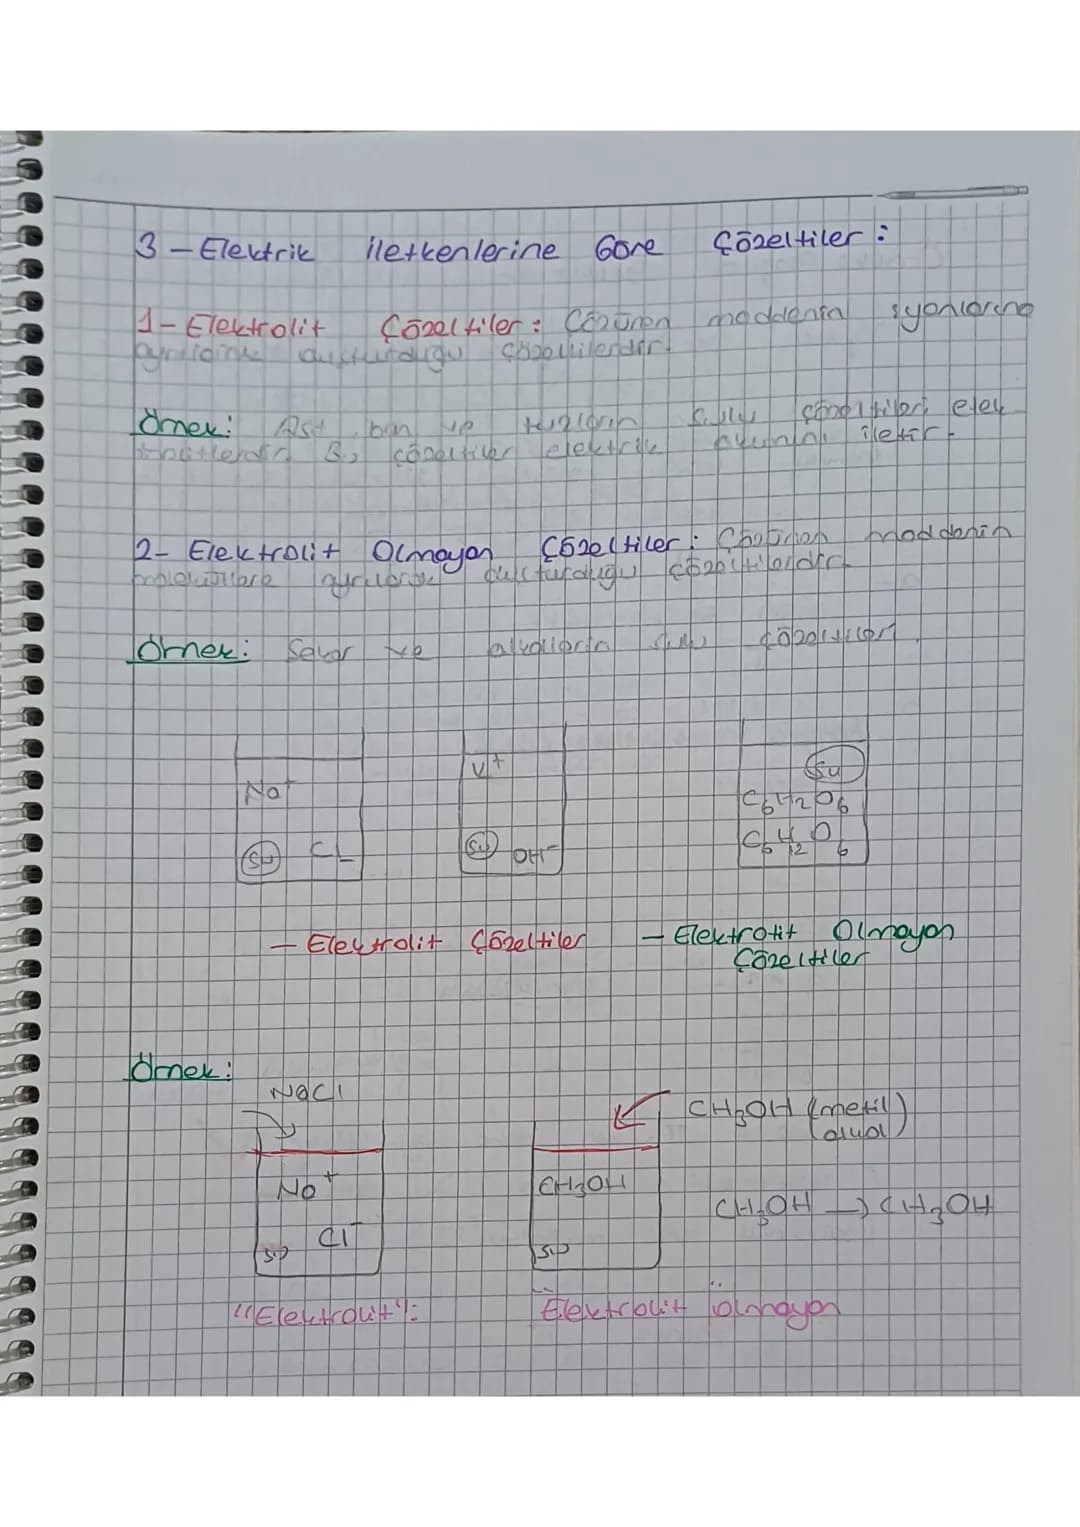 3 - Elektrik İletkenlerine Göre Çözeltiler :
1- Elektrolit Çözeltiler : Çözünen maddenin iyonlarına
ayrılarak oluşturduğu çözeltilerdir.
Örnek: Asit, baz ve tuzların sulu çözeltileri elek
trolitlerdir. Bu çözeltiler elektrik akımını iletir.
2- Elektrolit Olmayan Çözeltiler : Çözünen maddenin
moleküllere ayrılarak oluşturduğu çözeltilerdir.
Örnek: Şeker ve alkollerin sulu çözeltileri.
Na+ K+ Su
C6H2O6
Su CL Su OH- C6H12O6
- Elektrolit Çözeltiler - Elektrolit Olmayan
Çözeltiler
Örnek:
NaCl CH3OH (metil
alkol)
Na+ CH3OH
CH3OH → CH3OH
Cl-
"Elektrolit": Elektrolit olmayan